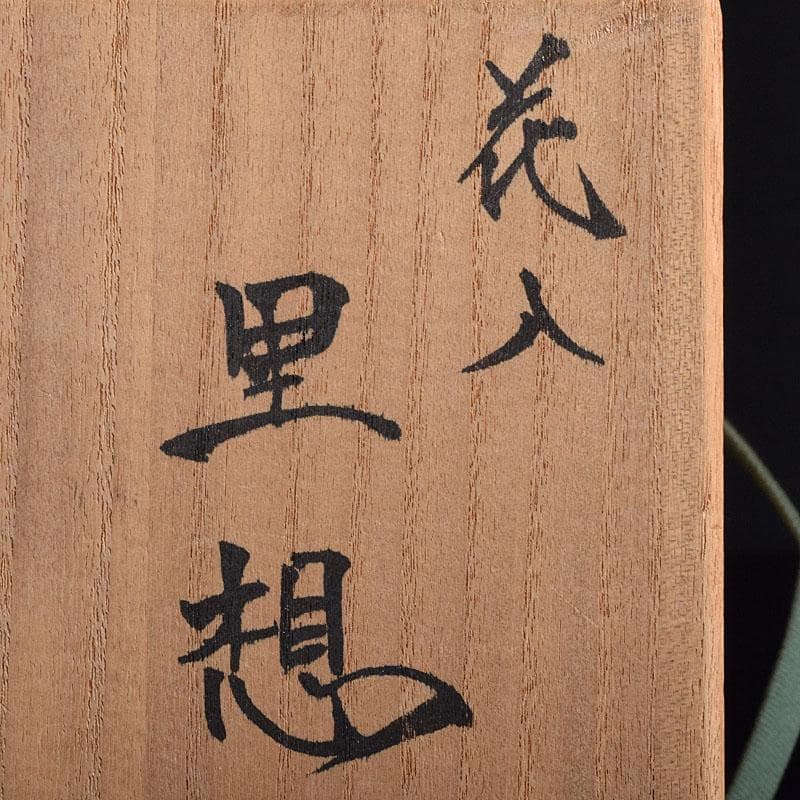 花入
里想